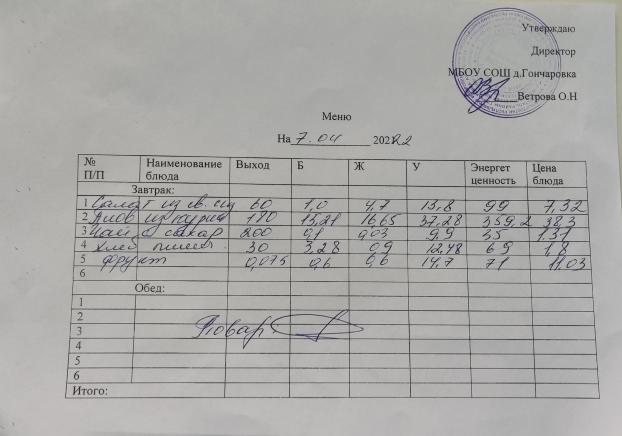 Утверждаю
Директор
МБОУ СОШ д.Гончаровка
Ветрова О.Н
Меню
На 7.04 2022
№ П/П Наименование блюда Выход Б Ж У Энергет ценность Цена блюда
Завтрак:
1 Салат из св. 60 1,0 4,7 13,8 99 7,32
2 Плов из курицы 180 15,21 16,65 37,28 359,2 38,3
3 Чай с сахар 200 0,1 0,03 9,9 35 1,31
4 Хлеб пшен. 30 3,28 09 12,48 69 1,8
5 фрукт 0,075 0,6 0,6 14,7 71 11.03
6
Обед:
1
2
3
4
5
6
Повар
Итого: